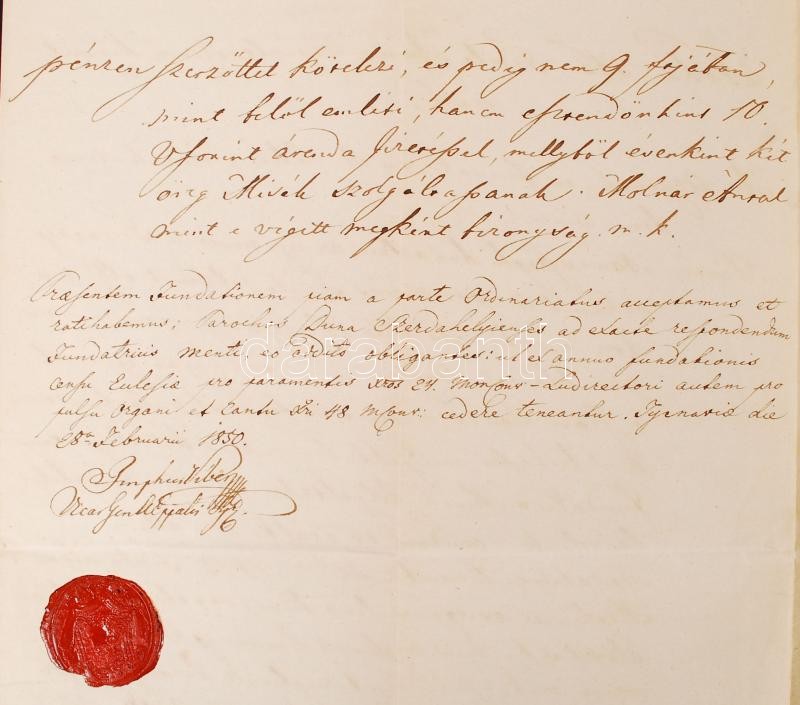 pénzen Szerzőttel kötelezi, és pedig nem 9. fojában,
mint belől emliti, hanem esztendőnkint 10.
Vforint árenda fizetéssel, mellyből évenkint két
öreg Misék szolgáltassanak. Molnár Antal
mint e végitt megként bizonyság m. k.
Præsentem Fundationem piam a parte Ordinariatus acceptamus et
ratihabemus; Parochos Duna Szerdahelyienses ad exacte respondendum
Fundatricis menti eo obligantes: ut ex annuo fundationis
censu Eclesiæ pro paramentis xros 24. Mconv - Ludirectori autem pro
pulsu Organi et Cantu Xri 48 Mconv: cedere teneantur. Tyrnaviæ die
28a Februarii 1850.
Vicar Gen AEppalis
darabanth